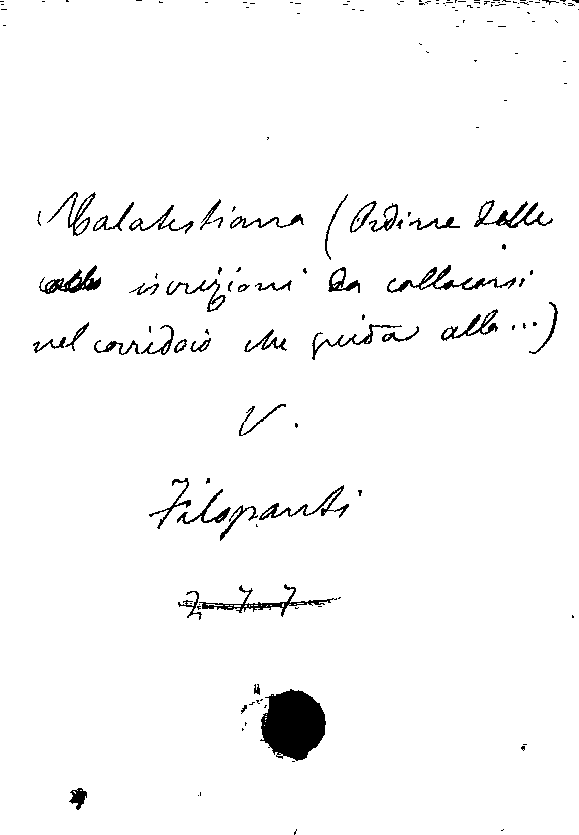 Malatestiana (Ordine delle
iscrizioni da collocarsi
nel corridoio che guida alla...)
V.
Filopanti
277